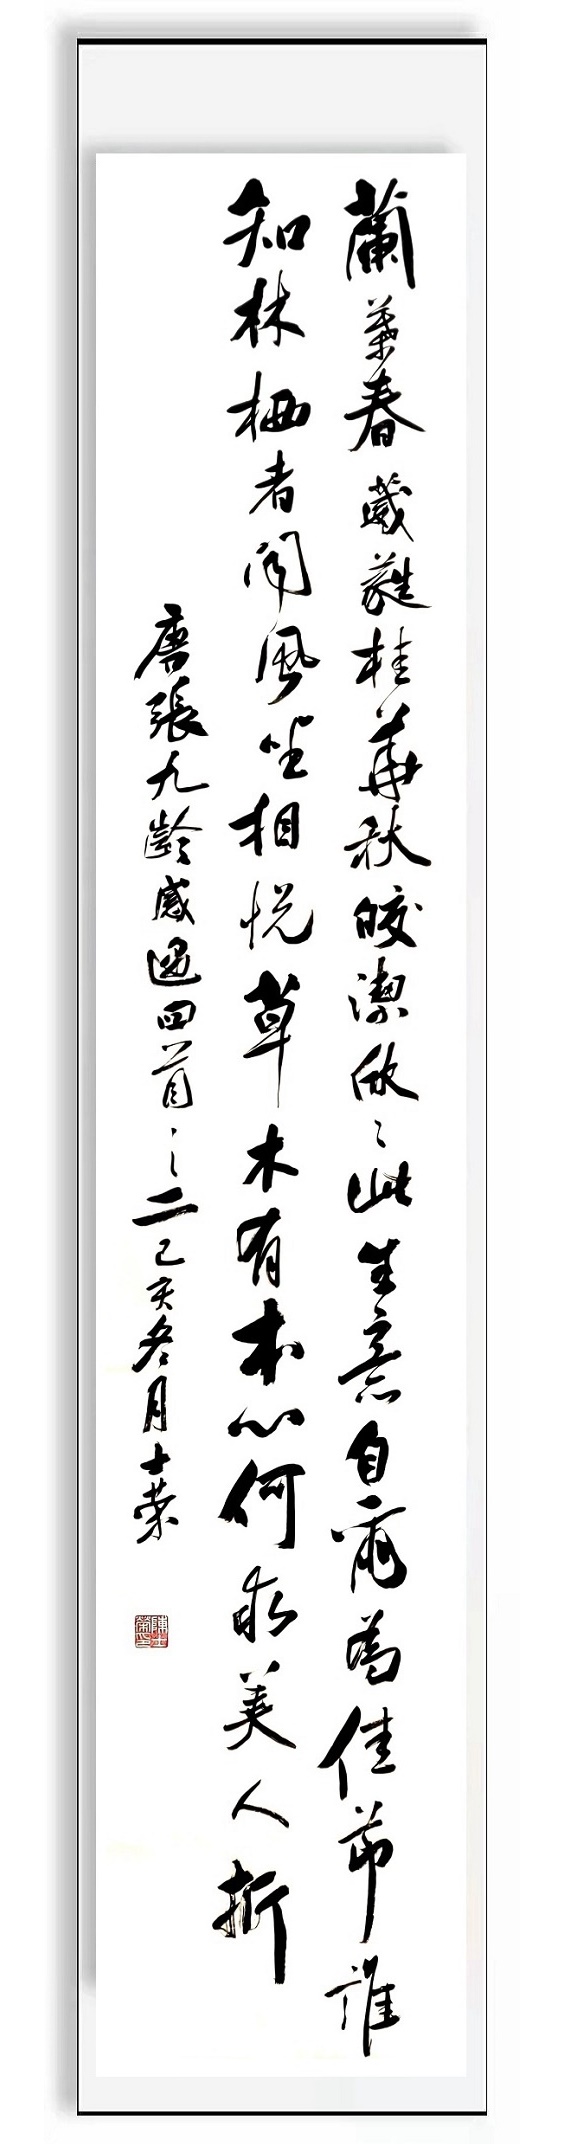 蘭葉春葳蕤桂華秋皎潔欣々此生意自爾為佳節誰
知林栖者聞風坐相悅草木有本心何求美人折
唐張九齡感遇四首之二己亥冬月士榮
陳士榮印